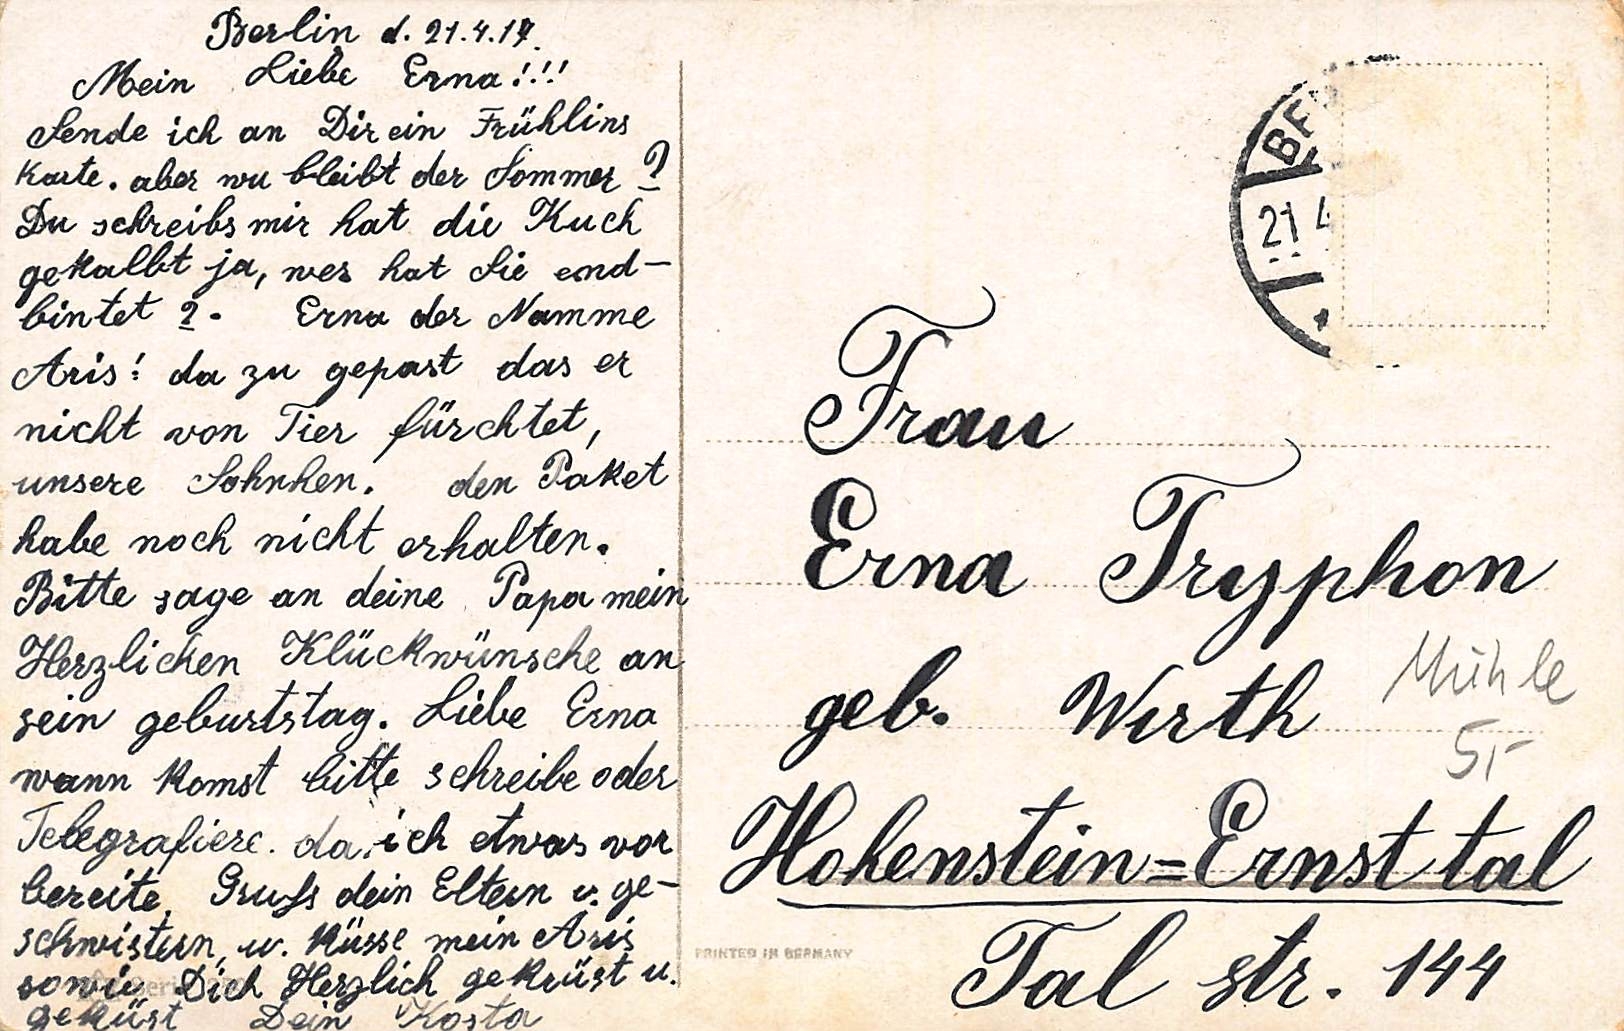 Berlin d. 21.4.17.
Mein Liebe Erna!!!
Sende ich an Dir ein Frühlins
Karte. aber wu bleibt der Sommer?
Du schreibs mir hat die Kuch
gekalbt ja, wes hat Sie end-
bintet?. Erna der Namme
Aris! da zu gepast das er
nicht von Tier fürchtet,
unsere Sohnhen. den Paket
habe noch nicht erhalten.
Bitte sage an deine Papa mein
Herzlichen Klückwünsche an
sein geburtstag. Liebe Erna
wann komst bitte schreibe oder
Telegrafiere. da ich etwas vor
bereite. Gruss dein Eltern u. ge-
schwistern, u. Küsse mein Aris
sowie Dich Herzlich gekrüst u.
geküst Dein Kosta
BE
21 4
Frau
Erna Tryphon
geb. Wirth
Mühle
5,-
Hohenstein=Ernst tal
Tal str. 144
PRINTED IN GERMANY